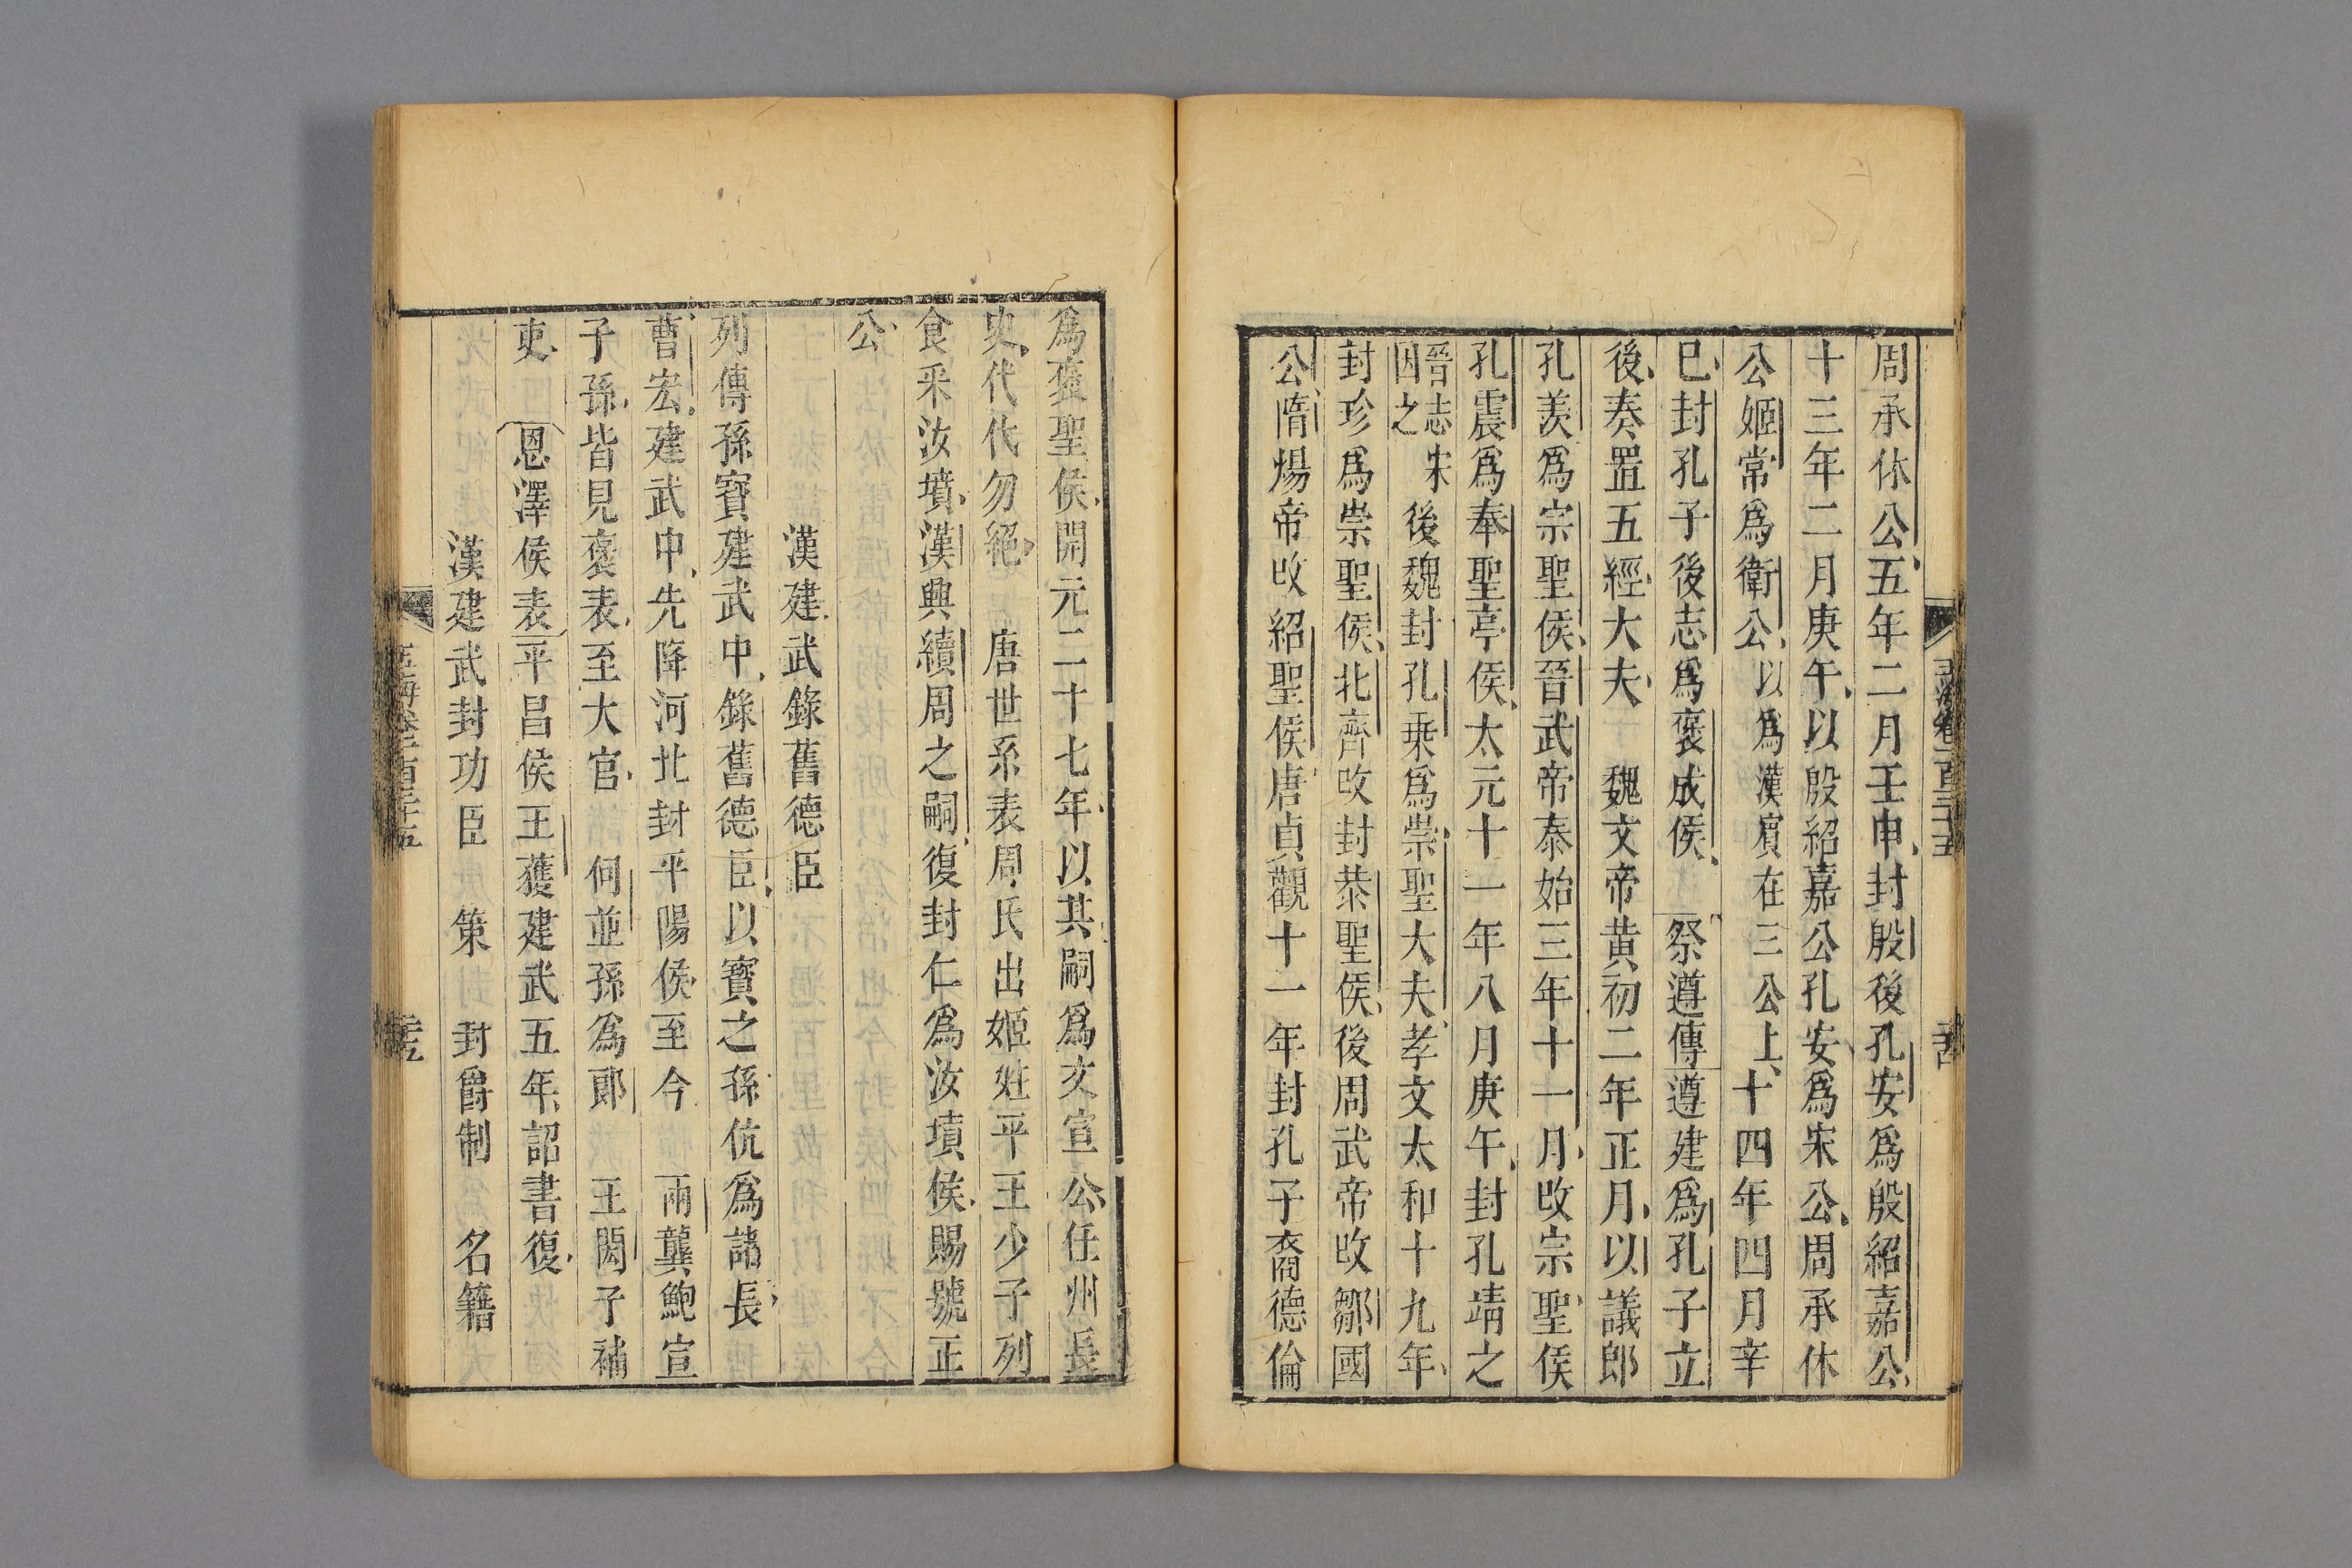 周承休公五年二月壬申封殷後孔安爲殷紹嘉公
十三年二月庚午以殷紹嘉公孔安爲宋公周承休
公姬常爲衛公以爲漢賓在三公上十四年四月辛
巳封孔子後志爲褒成侯 祭遵傳遵建爲孔子立
後奏置五經大夫 魏文帝黄初二年正月以議郎
孔羨爲宗聖侯晉武帝泰始三年十一月改宗聖侯
孔震爲奉聖亭侯太元十一年八月庚午封孔靖之
晉志宋
因之 後魏封孔乗爲崇聖大夫孝文太和十九年
封珍爲崇聖侯北齊改封恭聖侯後周武帝改鄒國
公隋煬帝改紹聖侯唐貞觀十一年封孔子裔德倫
爲褒聖侯開元二十七年以其嗣爲文宣公任州長
史代代勿絕 唐世系表周氏出姬姓平王少子列
食采汝墳漢興續周之嗣復封仁爲汝墳侯賜號正
公
漢建武錄舊德臣
列傳孫寶建武中錄舊德臣以寶之孫伉爲諸長
曹宏建武中先降河北封平陽侯至今 兩龔鮑宣
子孫皆見褒表至大官 何並孫爲郎 王閎子補
吏 恩澤侯表平昌侯王獲建武五年詔書復
漢建武封功臣 策 封爵制 名籍
玉海卷一百三十五
玉海卷一百三十五